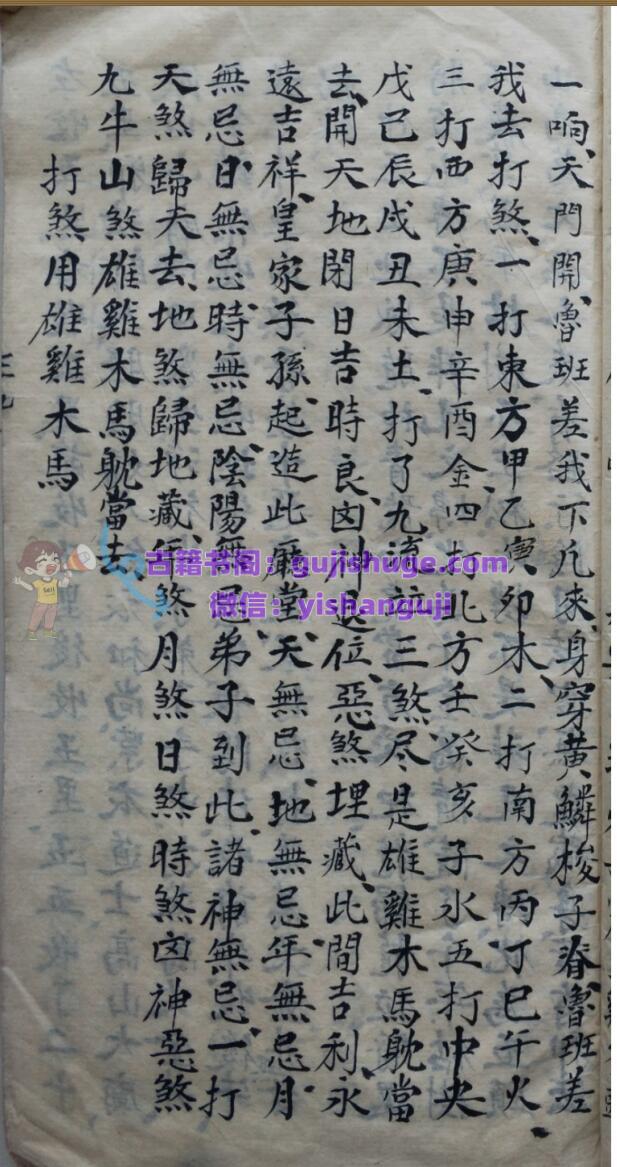 一响、天門開、魯班差我下凡來、身穿黄鱗梭子脊、魯班差
我去打煞、一打東方甲乙寅、卯木、二打南方丙丁巳午火、
三打西方庚申辛酉金、四打北方壬癸亥子水五打中央
戊己辰戌丑未土、打了九流 三煞、尽是雄雞木馬躭當
去、開天地閉日吉時良、凶神退位、惡煞埋藏、此間吉利、永
遠吉祥、皇家子孫、起造此廳堂、天無忌、地無忌年、無忌月、
無忌日、無忌時、無忌陰陽無 弟子到此、諸神無忌、一打
天煞歸天去、地煞歸地藏、年煞月煞日煞時煞凶神惡煞
九牛山煞雄雞木馬躭當去、
打煞用雄雞木馬
古籍书阁：gujishuge.com
微信：yishanguji